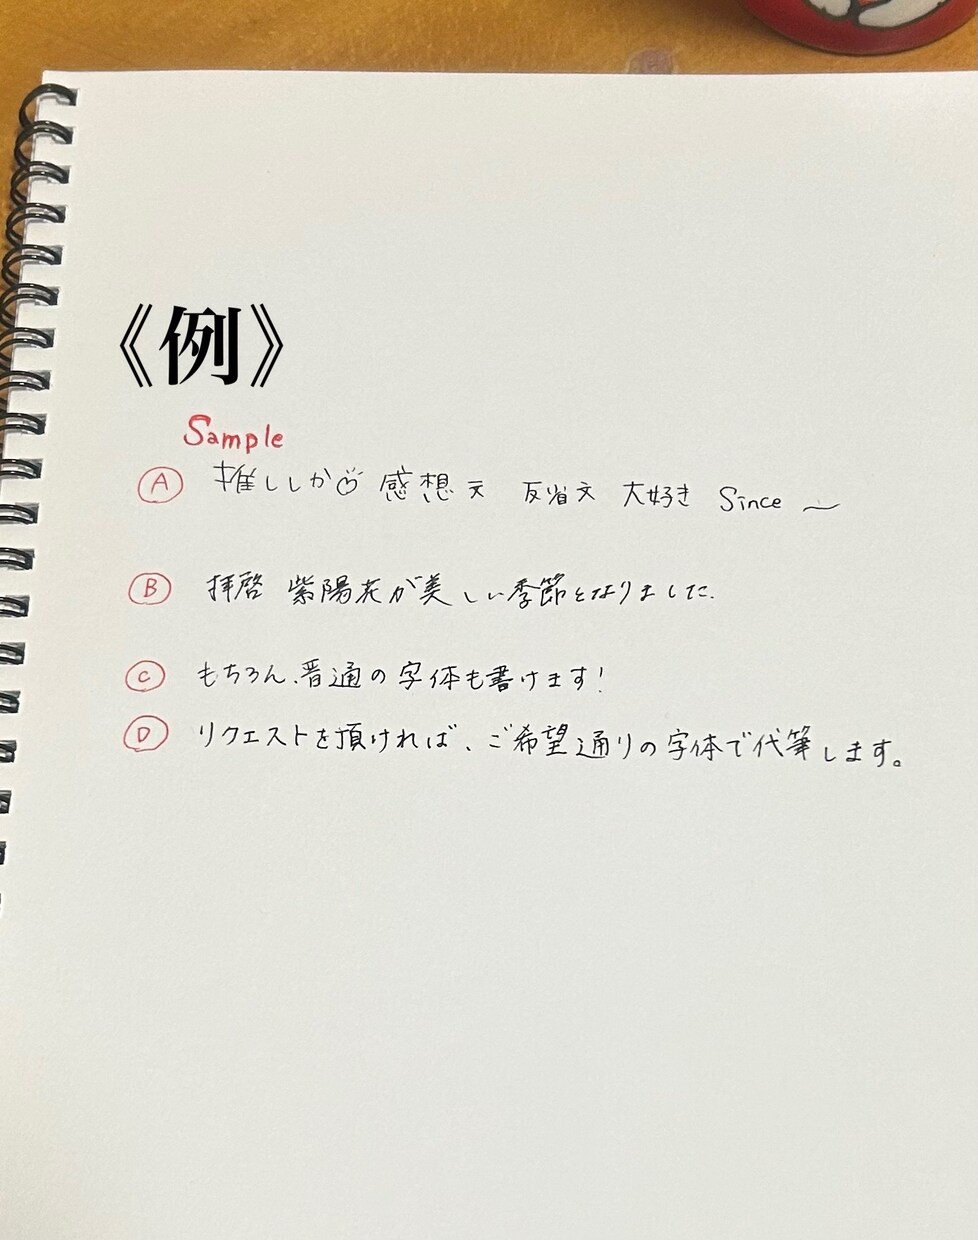 《例》
Sample
A 推ししか♡ 感想文 反省文 大好き Since 〜
B 拝啓 紫陽花が美しい季節となりました.
C もちろん、普通の字体も書けます!
D リクエストを頂ければ、ご希望通りの字体で代筆します。